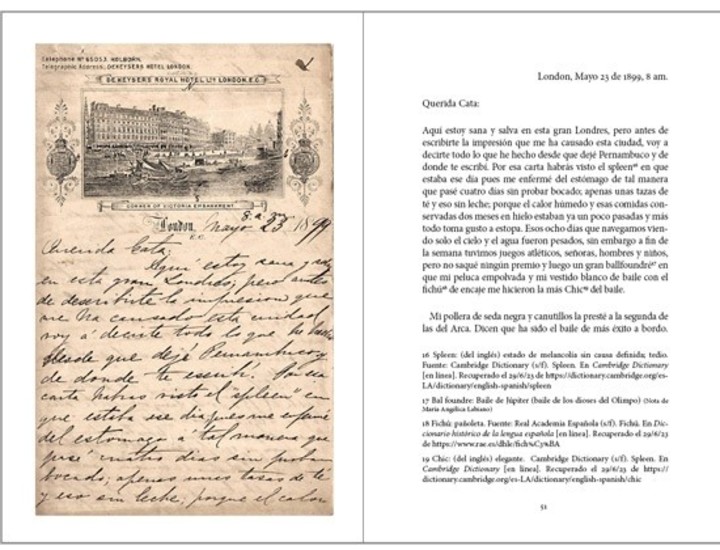 Telephone Nº 65053. HOLBORN.
Telegraphic Address: DEKEYSERS HOTEL LONDON.
DE KEYSERS ROYAL HOTEL LTD LONDON. E.C.
CORNER OF VICTORIA EMBANKMENT
8. a. m.
London, Mayo 23 1899
E.C.
Querida Cata:
Aquí estoy sana y salva
en esta gran Londres; pero antes
de describirte la impresion que
me ha causado esta ciudad
voy á decirte todo lo que he hecho
desde que dejé Pernambuco y
de donde te escribí. Por esa
carta habrás visto el "spleen" en
que estaba ese dia pues me enfermé
del estomago á tal manera que
pasé cuatro dias sin probar
bocado; apenas unas tazas de té
y eso sin leche; porque el calor
London, Mayo 23 de 1899, 8 am.
Querida Cata:
Aquí estoy sana y salva en esta gran Londres, pero antes de
escribirte la impresión que me ha causado esta ciudad, voy a
decirte todo lo que he hecho desde que dejé Pernambuco y de
donde te escribí. Por esa carta habrás visto el spleen¹⁶ en que
estaba ese día pues me enfermé del estómago de tal manera
que pasé cuatro días sin probar bocado; apenas unas tazas de
té y eso sin leche; porque el calor húmedo y esas comidas con-
servadas dos meses en hielo estaban ya un poco pasadas y más
todo toma gusto a estopa. Esos ocho días que navegamos vien-
do solo el cielo y el agua fueron pesados, sin embargo a fin de
la semana tuvimos juegos atléticos, señoras, hombres y niños,
pero no saqué ningún premio y luego un gran ballfoundré¹⁷ en
que mi peluca empolvada y mi vestido blanco de baile con el
fichú¹⁸ de encaje me hicieron la más Chic¹⁹ del baile.
Mi pollera de seda negra y canutillos la presté a la segunda de
las del Arca. Dicen que ha sido el baile de más éxito a bordo.
16 Spleen: (del inglés) estado de melancolía sin causa definida; tedio.
Fuente: Cambridge Dictionary (s/f). Spleen. En Cambridge Dictionary
[en línea]. Recuperado el 29/6/23 de https://dictionary.cambridge.org/es-
LA/dictionary/english-spanish/spleen
17 Bal foundre: Baile de Júpiter (baile de los dioses del Olimpo) (Nota de
María Angélica Labiano)
18 Fichú: pañoleta. Fuente: Real Academia Española (s/f). Fichú. En Dic-
cionario histórico de la lengua española [en línea]. Recuperado el 29/6/23
de https://www.rae.es/dhle/fich%C3%BA
19 Chic: (del inglés) elegante. Cambridge Dictionary (s/f). Spleen. En
Cambridge Dictionary [en línea]. Recuperado el 29/6/23 de https://
dictionary.cambridge.org/es-LA/dictionary/english-spanish/chic
51